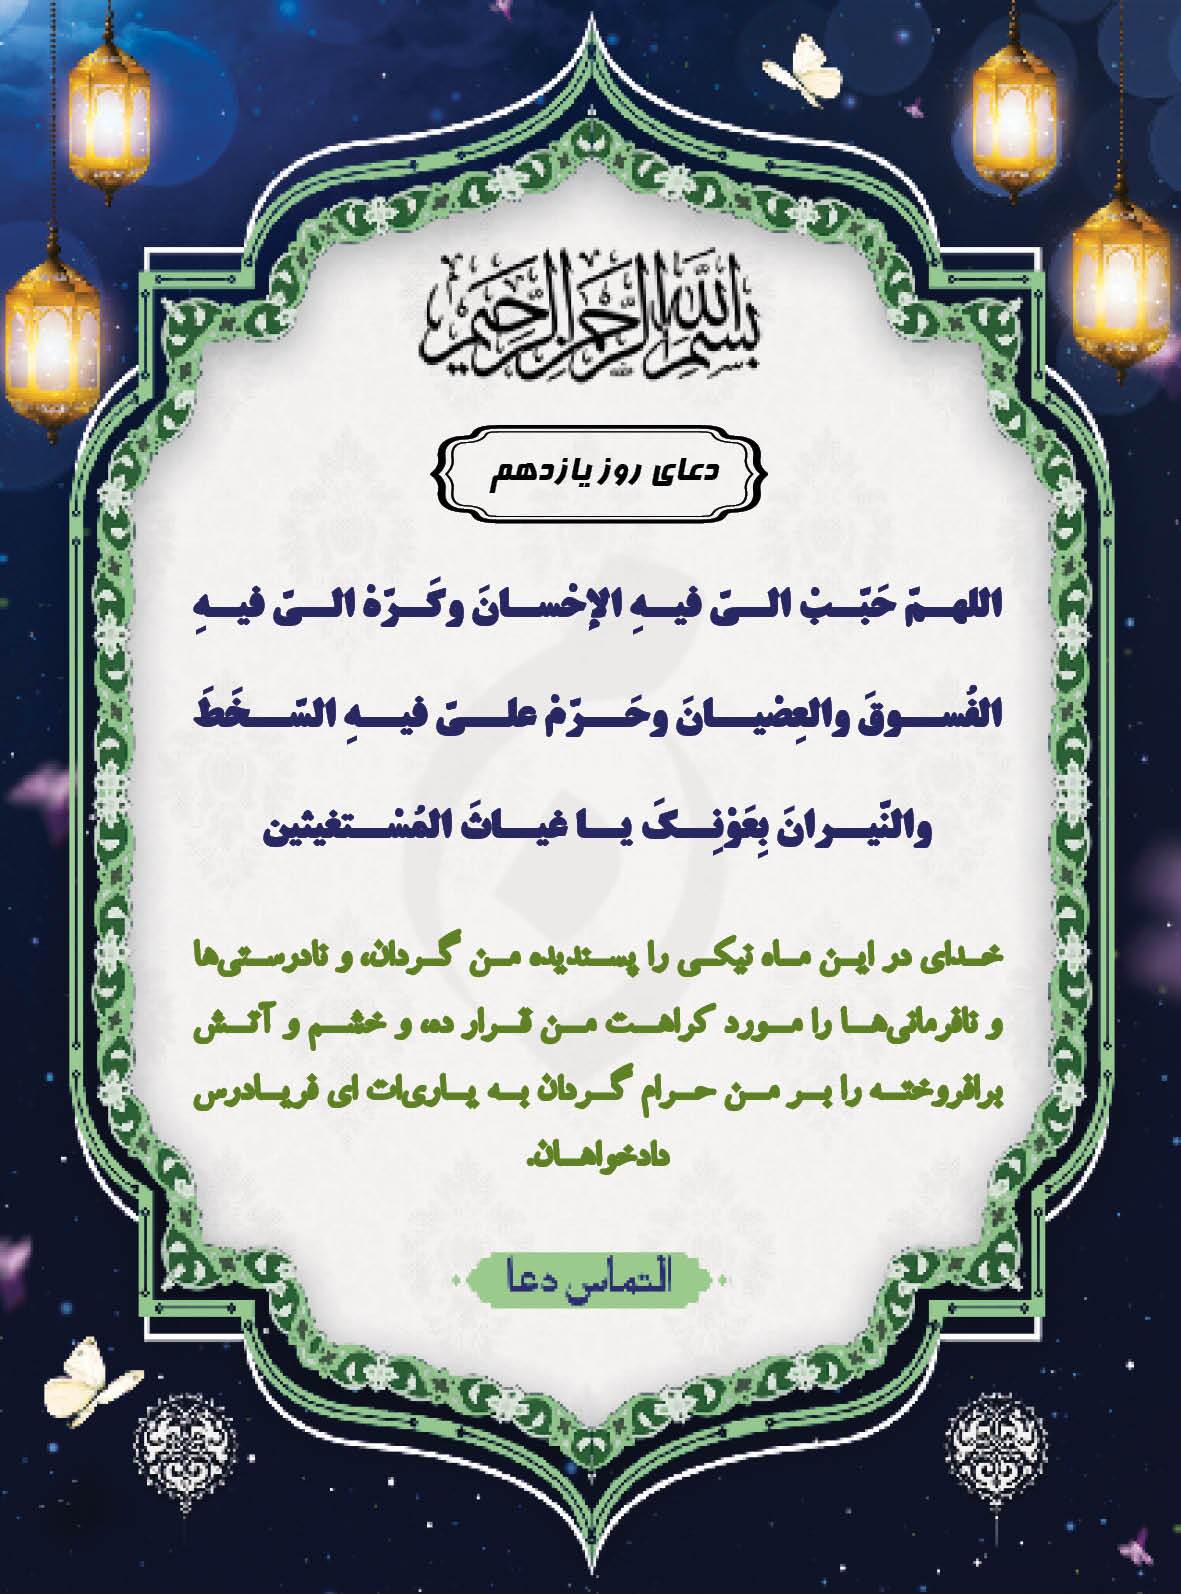 بسم الله الرحمن الرحیم
دعای روز یازدهم
اللهمّ حَبّبْ الیّ فیهِ الإحْسانَ وکَرّهْ الیّ فیهِ
الفُسوقَ والعِصْیانَ وحَرّمْ علیّ فیهِ السّخَطَ
والنّیرانَ بِعَوْنِکَ یا غیاثَ المُسْتغیثین
خدای در این ماه نیکی را پسندیده من گردان، و نادرستی‌ها
و نافرمانی‌ها را مورد کراهت من قرار ده، و خشم و آتش
برافروخته را بر من حرام گردان به یاری‌ات ای فریادرس
دادخواهان.
التماس دعا